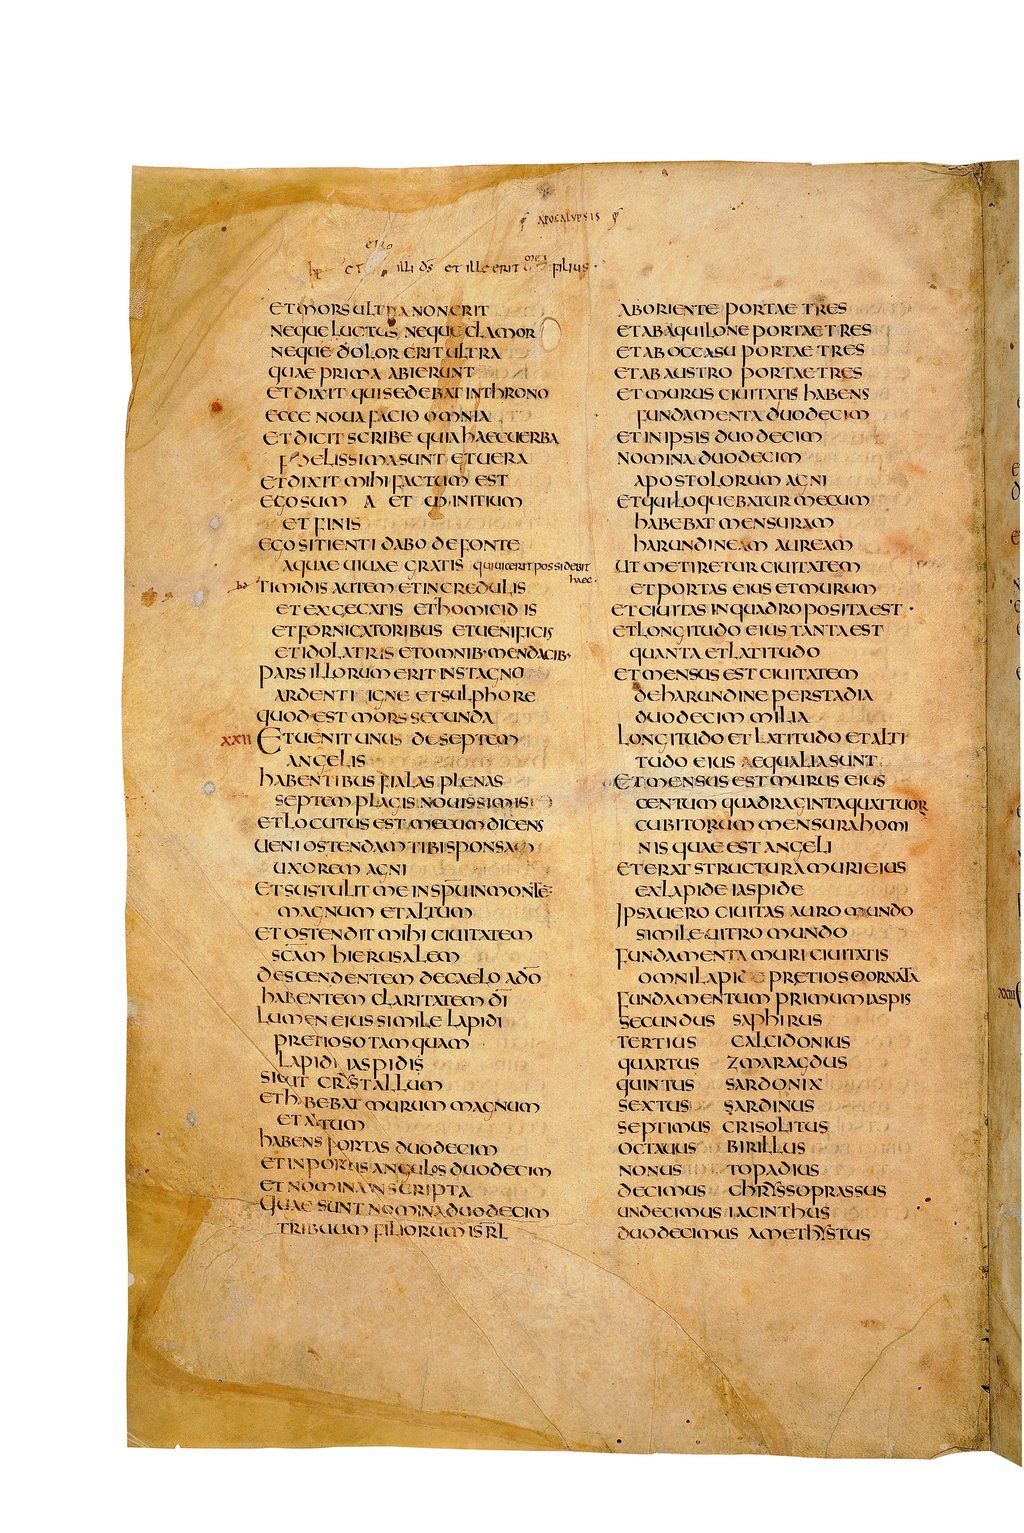 APOCALYPSIS
ero
hp et illi d̄s et ille erit mei filius·
ET MORS ULTRA NON ERIT
NEQUE LUCTUS NEQUE CLAMOR
NEQUE DOLOR ERIT ULTRA
QUAE PRIMA ABIERUNT
ET DIXIT QUI SEDEBAT IN THRONO
ECCE NOUA FACIO OMNIA
ET DICIT SCRIBE QUIA HAEC UERBA
FIDELISSIMA SUNT ET UERA
ET DIXIT MIHI FACTUM EST
EGO SUM A ET ω INITIUM
ET FINIS
EGO SITIENTI DABO DE FONTE
AQUAE UIUAE GRATIS qui uicerit possidebit
haec·
hd TIMIDIS AUTEM ET INCREDULIS
ET EXECRATIS ET HOMICIDIS
ET FORNICATORIBUS ET UENIFICIS
ET IDOLATRIS ET OMNIB· MENDACIB·
PARS ILLORUM ERIT IN STAGNO
ARDENTI IGNE ET SULPHORE
QUOD EST MORS SECUNDA
XXII ET UENIT UNUS DE SEPTEM
ANGELIS
HABENTIBUS FIALAS PLENAS
SEPTEM PLAGIS NOUISSIMIS
ET LOCUTUS EST MECUM DICENS
UENI OSTENDAM TIBI SPONSAM
UXOREM AGNI
ET SUSTULIT ME IN SP̄U IN MONTE
MAGNUM ET ALTUM
ET OSTENDIT MIHI CIUITATEM
SC̄AM HIERUSALEM
DESCENDENTEM DE CAELO A D̄O
HABENTEM CLARITATEM D̄I
LUMEN EIUS SIMILE LAPIDI
PRETIOSO TAMQUAM
LAPIDI IASPIDIS
SICUT CRYSTALLUM
ET HABEBAT MURUM MAGNUM
ET ALTUM
HABENS PORTAS DUODECIM
ET IN PORTIS ANGULOS DUODECIM
ET NOMINA INSCRIPTA
QUAE SUNT NOMINA DUODECIM
TRIBUUM FILIORUM ISR̄L
AB ORIENTE PORTAE TRES
ET AB AQUILONE PORTAE TRES
ET AB OCCASU PORTAE TRES
ET AB AUSTRO PORTAE TRES
ET MURUS CIUITATIS HABENS
FUNDAMENTA DUODECIM
ET IN IPSIS DUODECIM
NOMINA DUODECIM
APOSTOLORUM AGNI
ET QUI LOQUEBATUR MECUM
HABEBAT MENSURAM
HARUNDINEAM AUREAM
UT METIRETUR CIUITATEM
ET PORTAS EIUS ET MURUM
ET CIUITAS IN QUADRO POSITA EST·
ET LONGITUDO EIUS TANTA EST
QUANTA ET LATITUDO
ET MENSUS EST CIUITATEM
DE HARUNDINE PER STADIA
DUODECIM MILIA
LONGITUDO ET LATITUDO ET ALTI
TUDO EIUS AEQUALIA SUNT
ET MENSUS EST MURUS EIUS
CENTUM QUADRAGINTA QUATTUOR
CUBITORUM MENSURA HOMI
NIS QUAE EST ANGELI
ET ERAT STRUCTURA MURI EIUS
EX LAPIDE IASPIDE
IPSA UERO CIUITAS AURO MUNDO
SIMILE UITRO MUNDO
FUNDAMENTA MURI CIUITATIS
OMNI LAPIDE PRETIOSO ORNATA
FUNDAMENTUM PRIMUM IASPIS
SECUNDUS SAPHIRUS
TERTIUS CALCIDONIUS
QUARTUS ZMARAGDUS
QUINTUS SARDONIX
SEXTUS SARDINUS
SEPTIMUS CRISOLITUS
OCTAUUS BIRILLUS
NONUS TOPADIUS
DECIMUS CHRYSSOPRASSUS
UNDECIMUS IACINTHUS
DUODECIMUS AMETHYSTUS
XXIII